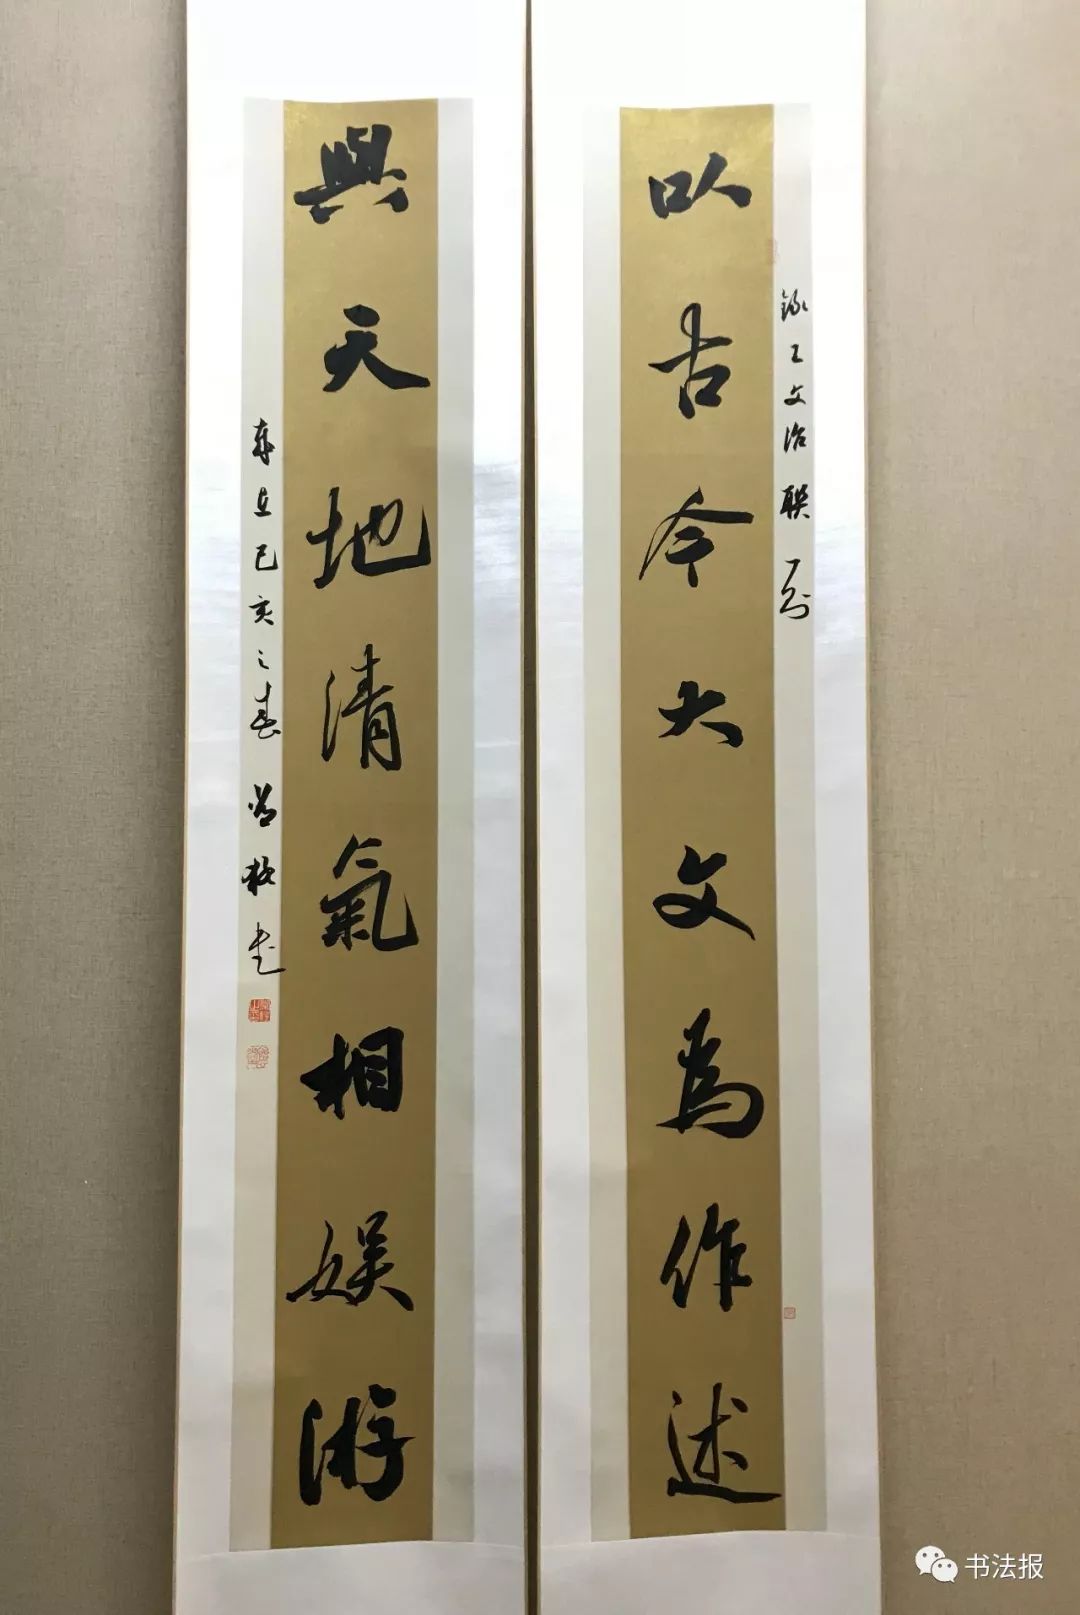 以古今大文為作述
錄王文治聯句
與天地清氣相娛游
歲在己亥之春
书法报